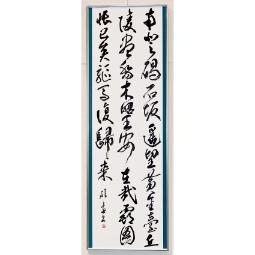 南登碣石坂遙望黃金臺丘
陵盡喬木昭王安在哉霸圖
悵已矣驅馬復歸來